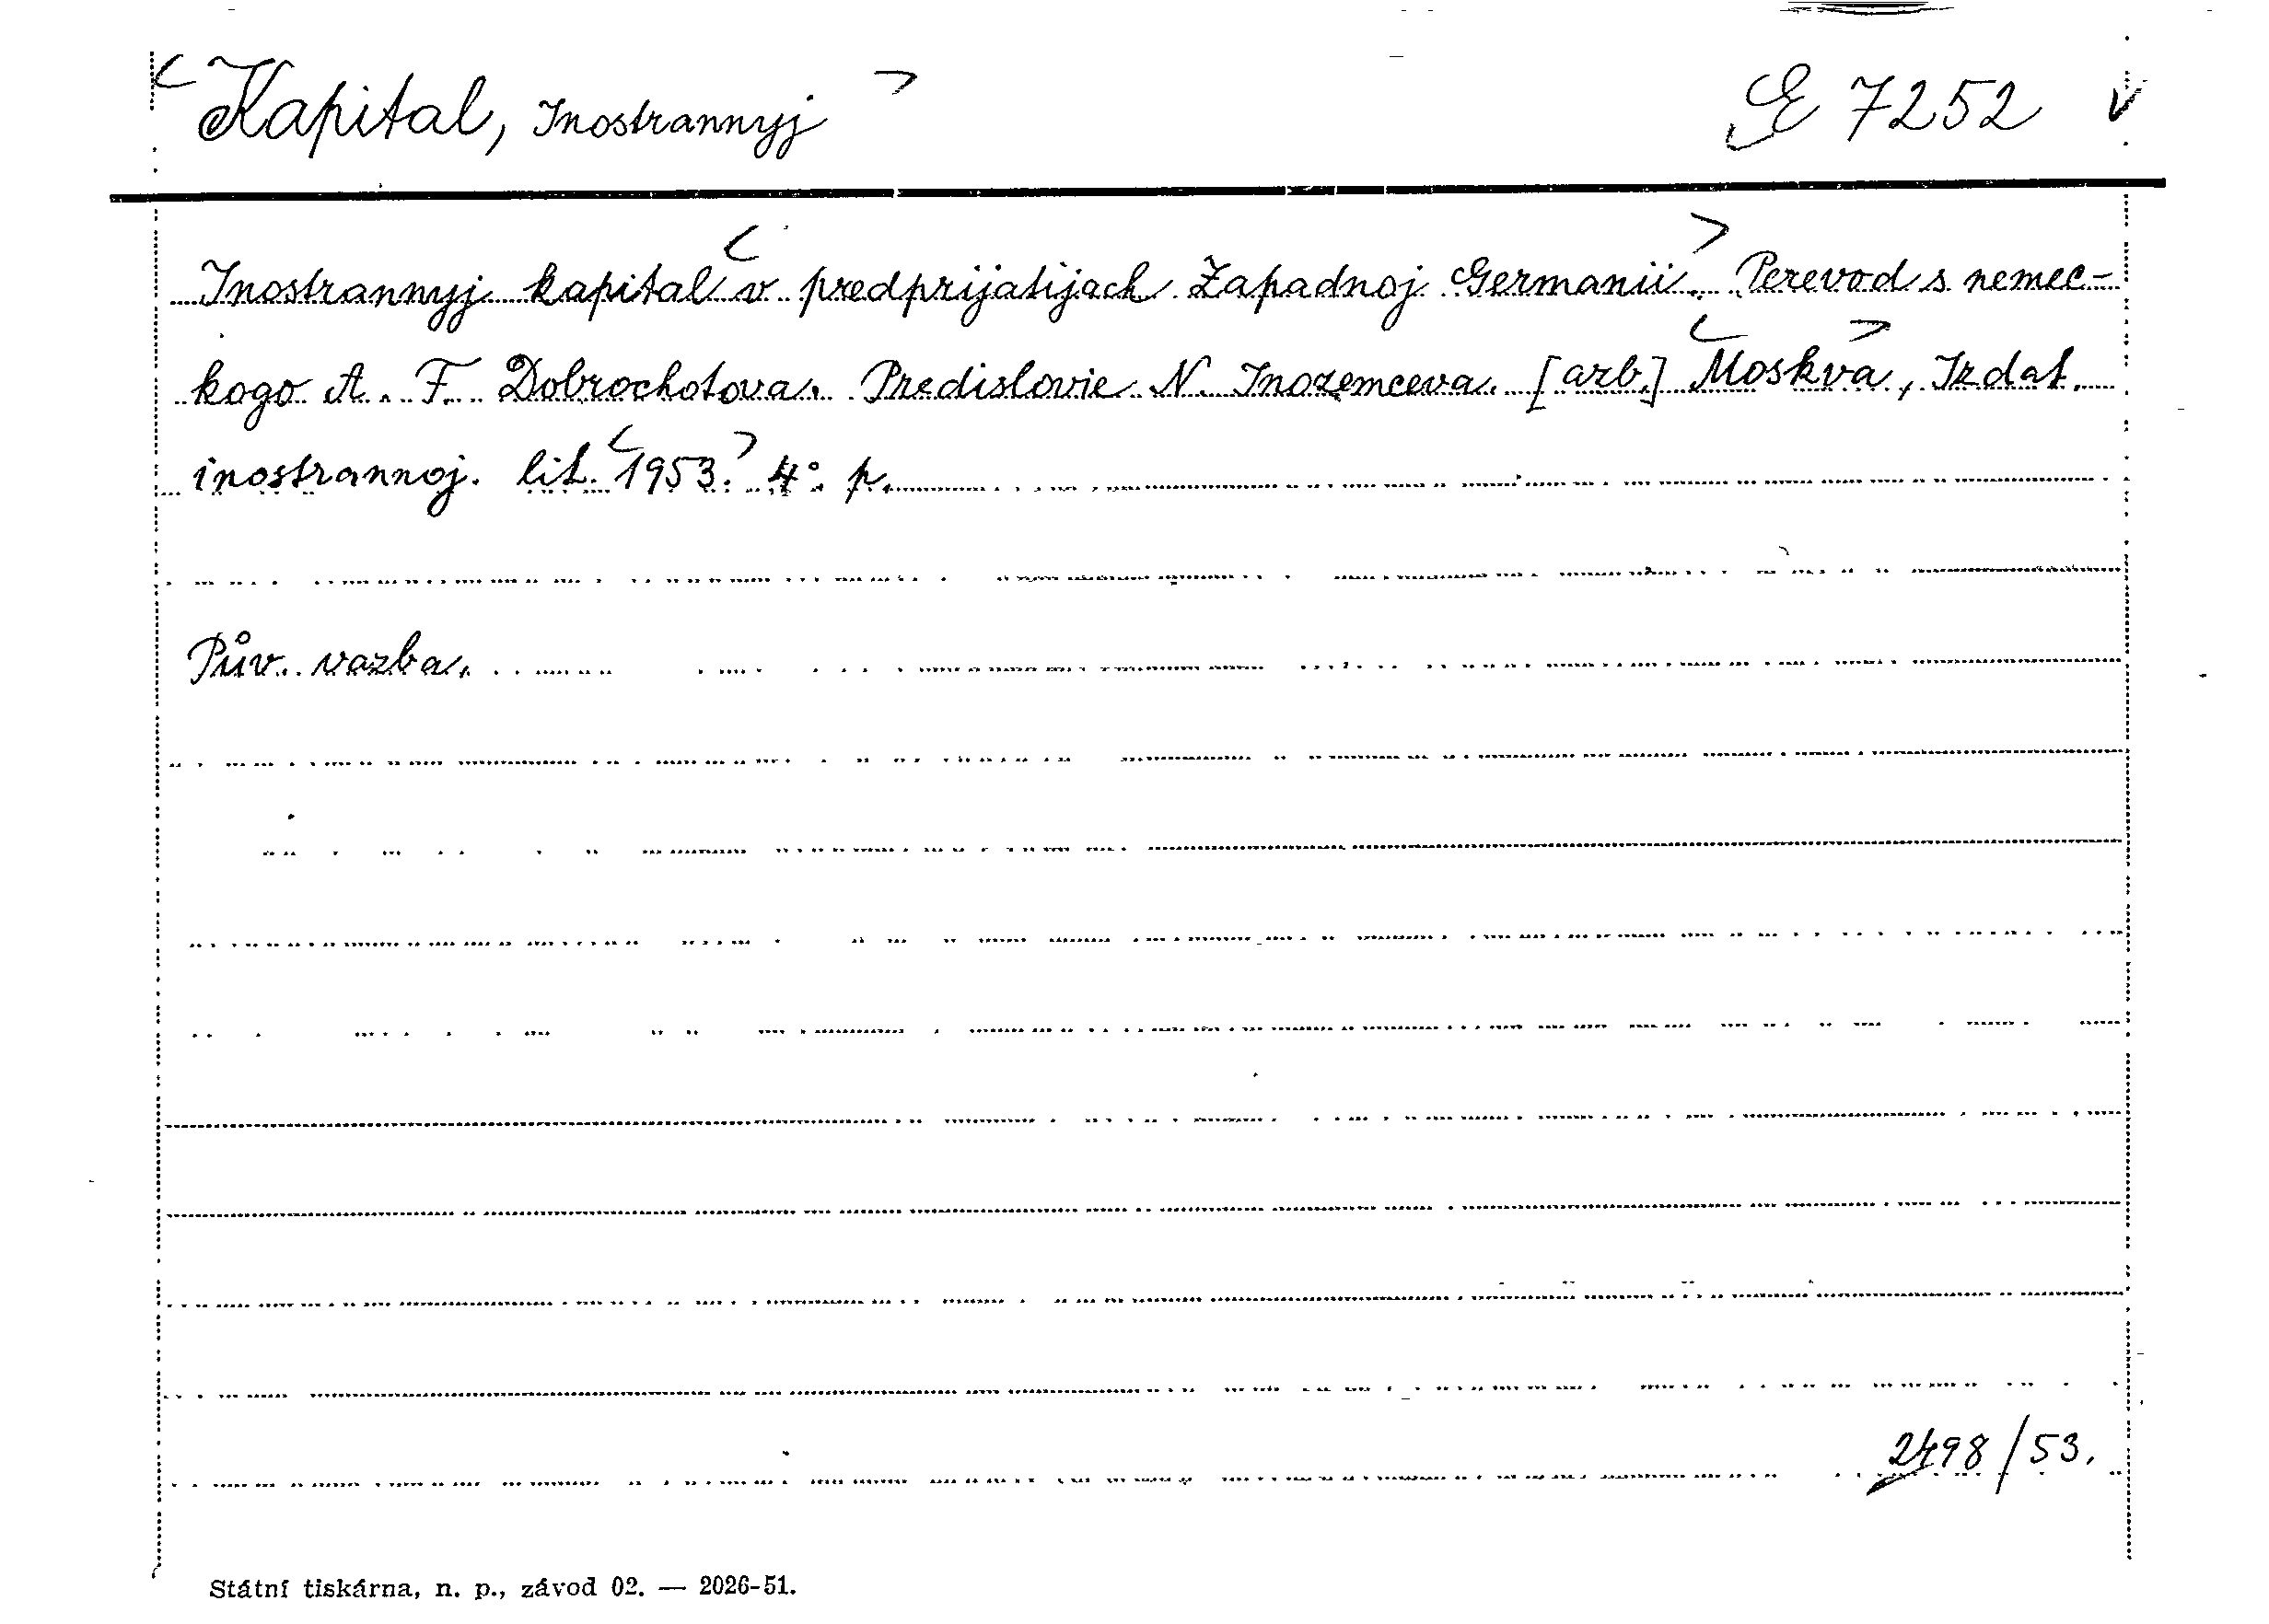 < Kapital, Inostrannyj > E 7252 v
Inostrannyj kapital < v predprijatijach Zapadnoj Germanii. > Perevod s nemec-
kogo A. F. Dobrochotova. Predislovie N. Inozemceva. [arb.] < Moskva >, Izdat.
inostrannoj. lit. < 1953. > 4°. p.
Pův. vazba.
2498/53.
Státní tiskárna, n. p., závod 02. — 2026-51.